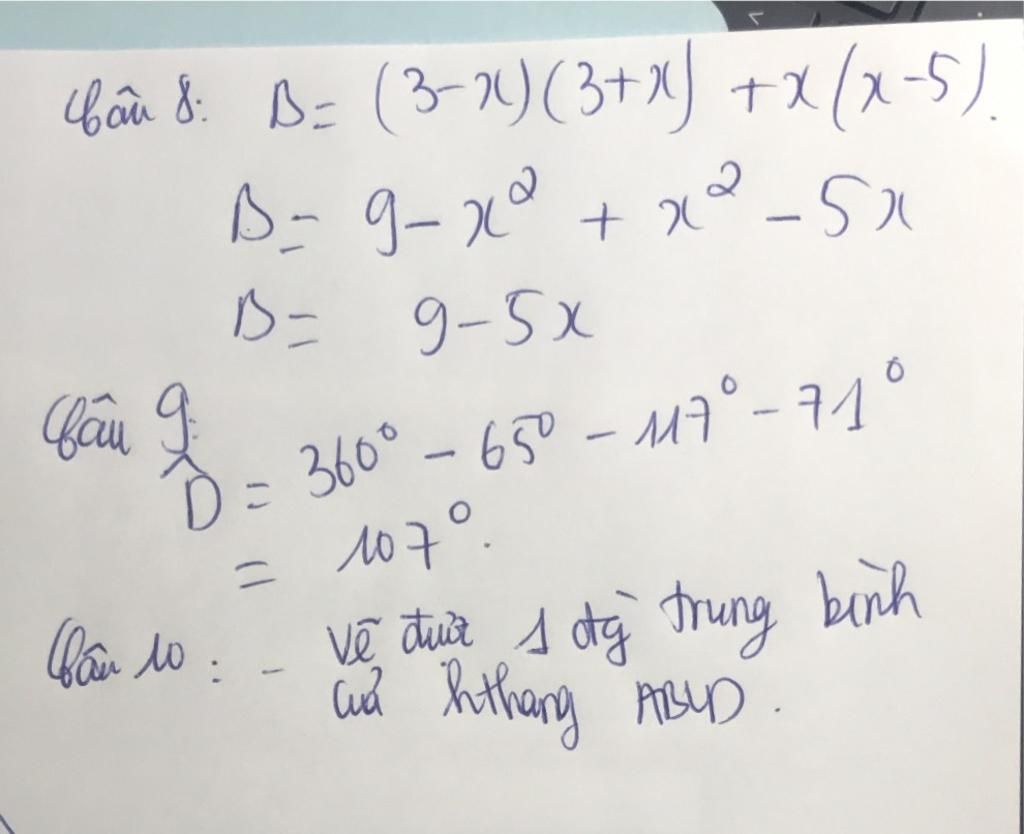 Câu 8: B = (3-x)(3+x) + x(x-5).
B = 9 - x² + x² - 5x
B = 9 - 5x
Câu 9:
D̂ = 360° - 65° - 117° - 71°
= 107°.
Câu 10: - Vẽ được 1 đg` trung bình
của hthang ABCD.